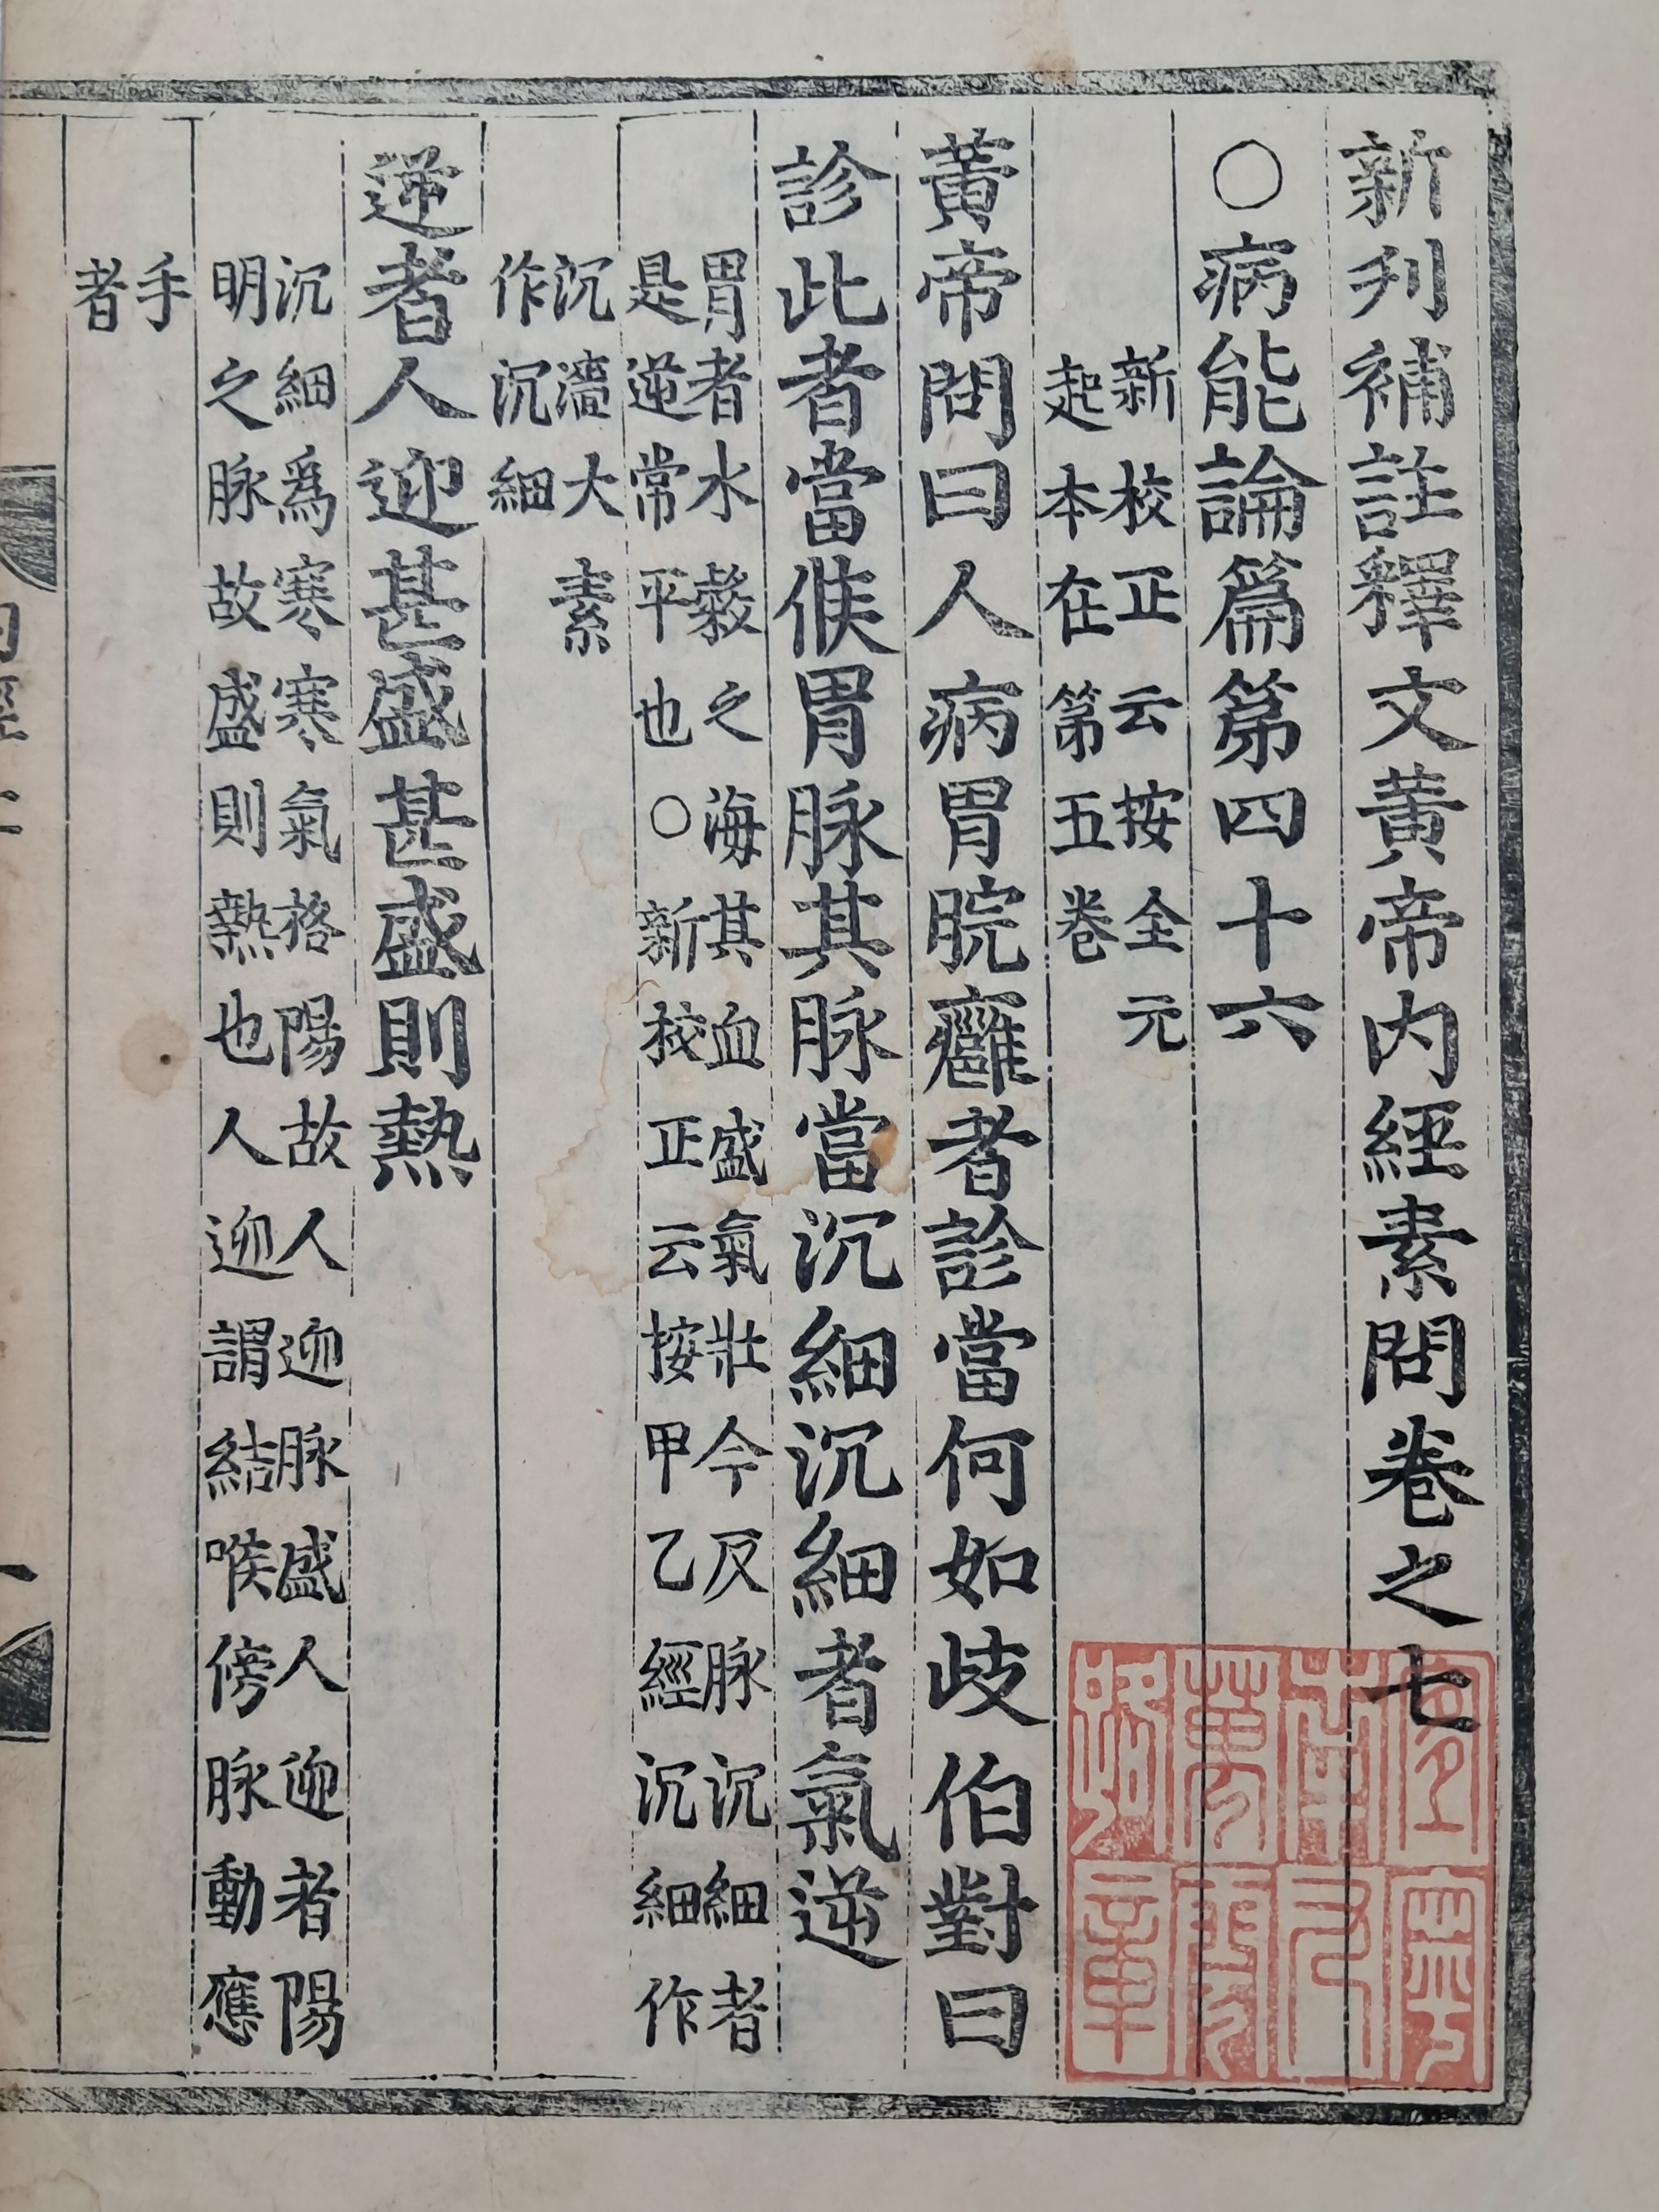 新刋補註釋文黃帝内經素問卷之七
○病能論篇第四十六
新校正云按全元
起本在第五卷
黃帝問曰人病胃脘癰者診當何如歧伯對曰
診此者當候胃脉其脉當沉細沉細者氣逆
胃者水穀之海其血盛氣壯今反脉沉細者
是逆常平也○新挍正云按甲乙經沉細作
沉濇大素
作沉細
逆者人迎甚盛甚盛則熱
沉細爲寒寒氣格陽故人迎脉盛人迎者陽
明之脉故盛則熱也人迎謂結喉傍脉動應
手
者